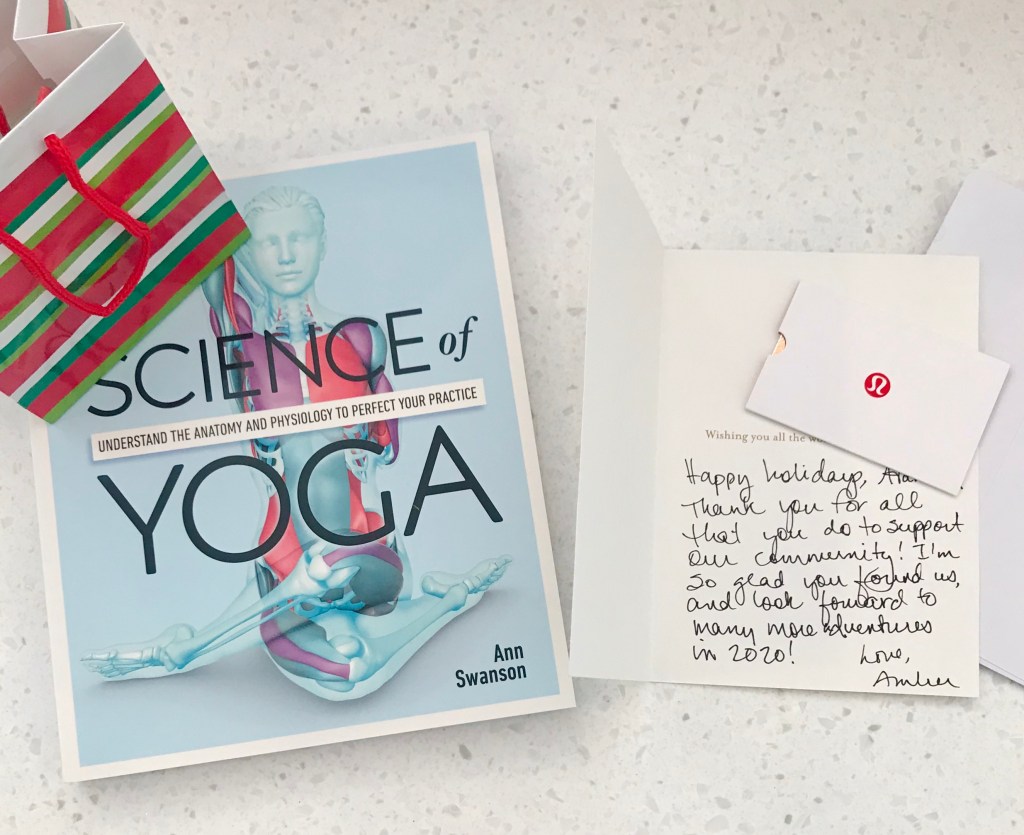 SCIENCE of
UNDERSTAND THE ANATOMY AND PHYSIOLOGY TO PERFECT YOUR PRACTICE
YOGA
Ann
Swanson
Wishing you all the
Happy holidays,
Thank you for all
that you do to support
our community! I'm
so glad you found us,
and look forward to
many more adventures
in 2020!
Love,
Amber